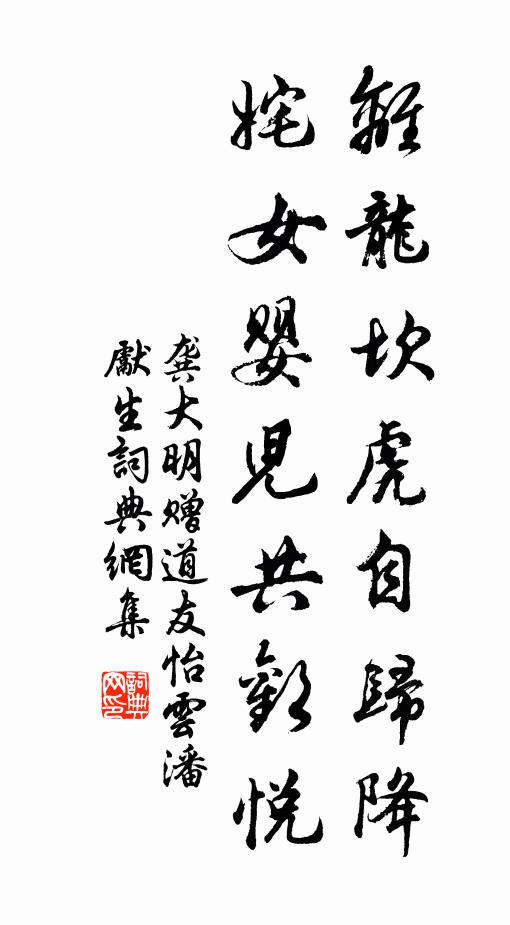 離龍坎虎自歸降
姹女嬰兒共歡悅
龔大明贈道友怡雲潘
獻生詞典網集
詞典网印